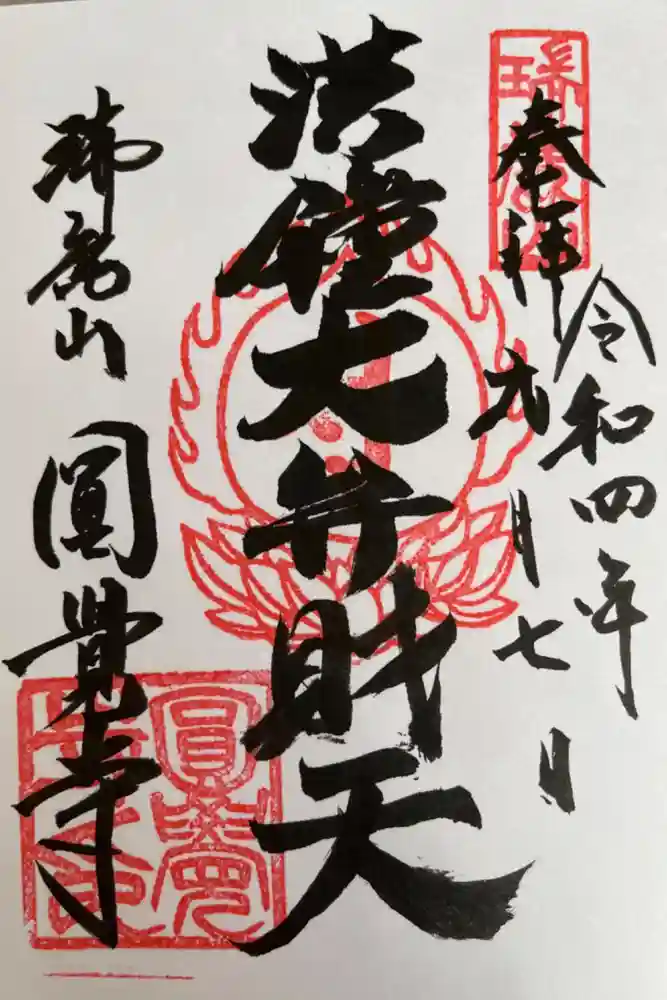 奉拝
令和四年
六月七日
洪鐘大弁財天
瑞鹿山
圓覺寺